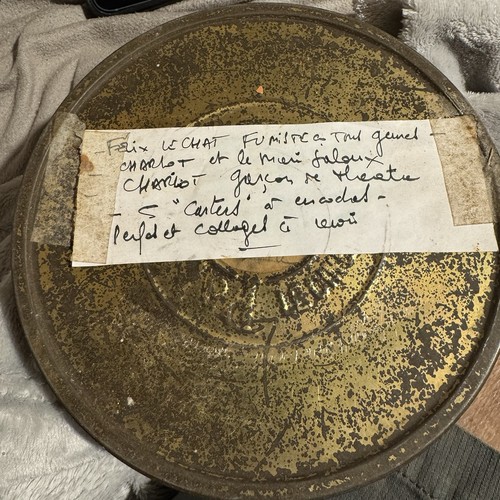 - Félix LE CHAT FUMISTE en tout genre -
CHARLOT et le Mari jaloux
CHARLOT garçon de theatre
- 5 "Carters" à encoches -
Perfos et collages à revoir